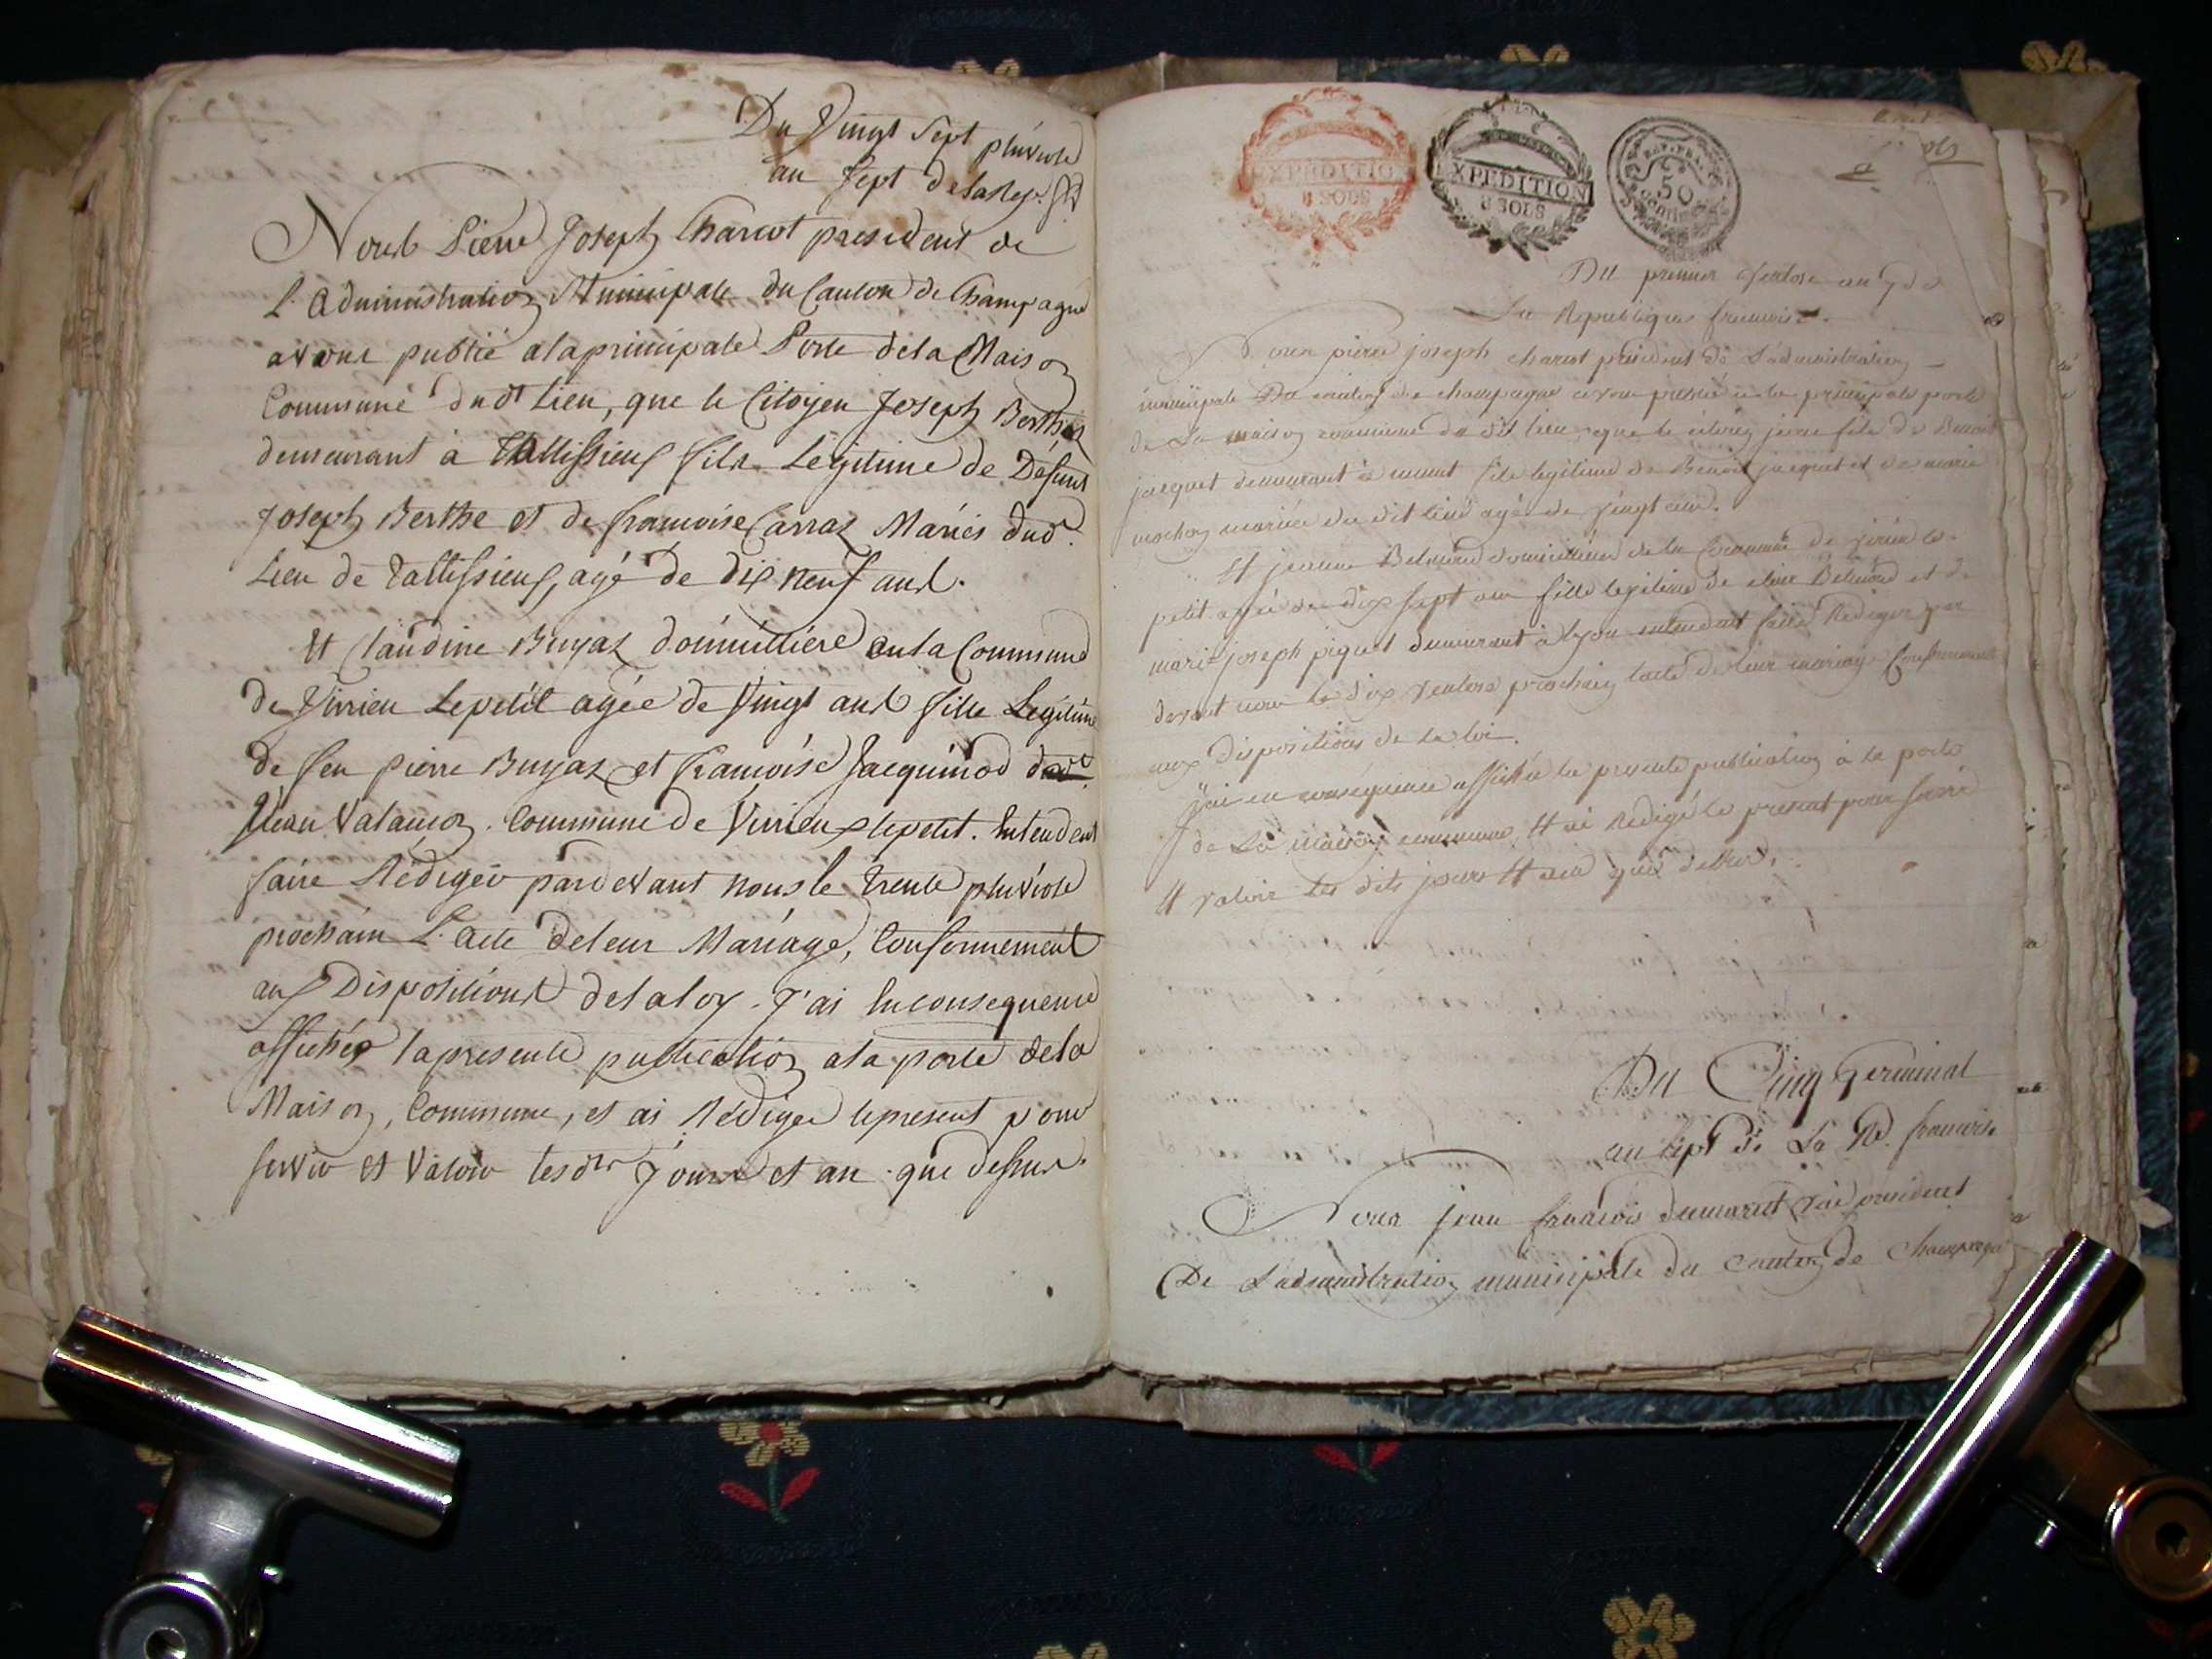 Du Vingt Sept pluviose
an Sept de la Rep. f.
Nous Pierre Joseph Charcot president de
L'Administration Municipale du Canton de Champagne
avons publié a la principale Porte de la Maison
Commune dudt Lieu, que le Citoyen Joseph Berthe
demeurant à Tallissieux fils Légitime de Défunt
Joseph Berthe et de francoise Carraz Mariés dud.
Lieu de Tallissieux, agé de dix neuf ans.
Et Claudine Buyaz domicilliére en la Commune
de Virrieu Lepetit agée de Vingt ans fille Legitime
de feu pierre Buyaz et francoise Jacquinod
Jean Valamoz. Commune de Virrieux lepetit. Entendent
faire Rédiger pardevant nous le trente pluviose
prochain L'acte de leur Mariage, Conformement
aux Dispositions de la loy. J'ai En consequence
affichée la presente publication a la porte de la
Maison, Commune, et ai Rédigée le present pour
servir et Valoir lesdts Jours et an que dessus.
EXPEDITION
8 SOLS
EXPEDITION
8 SOLS
REP. FRA.
50
Centimes
Du premier Ventose an 7 de
La Republique francoise.
Nous pierre joseph charcot président de L'administration
municipale Du canton de champagne avons publié à la principale porte
de La maison commune du dit lieu, que le citoyen
jacquet demeurant à fils legitime de Benoit jacquet et de marie
mochon mariés du dit lieu agé de vingt ans.
Et jeanne Belmond domiciliée de la Commune de virieu le
petit agée de dix sept ans fille legitime de Belmond et de
marie joseph piquet demeurant à lyon entendent faire Rediger par
devant nous le dix ventose prochain l'acte de leur mariage Conformement
aux dispositions de la loi.
J'ai en consequence affichée la presente publication à la porte
de La maison commune, Et ai Redigé le present pour servir
Et valoir les dits jours Et an que dessus.
Du Cinq Germinal
an Sept de La R. francoise
Nous jean francois dumarest vice president
De L'administration municipale du canton de Champagne